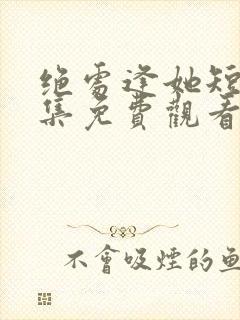 绝处逢她短
集免費觀看
不會吸煙的魚